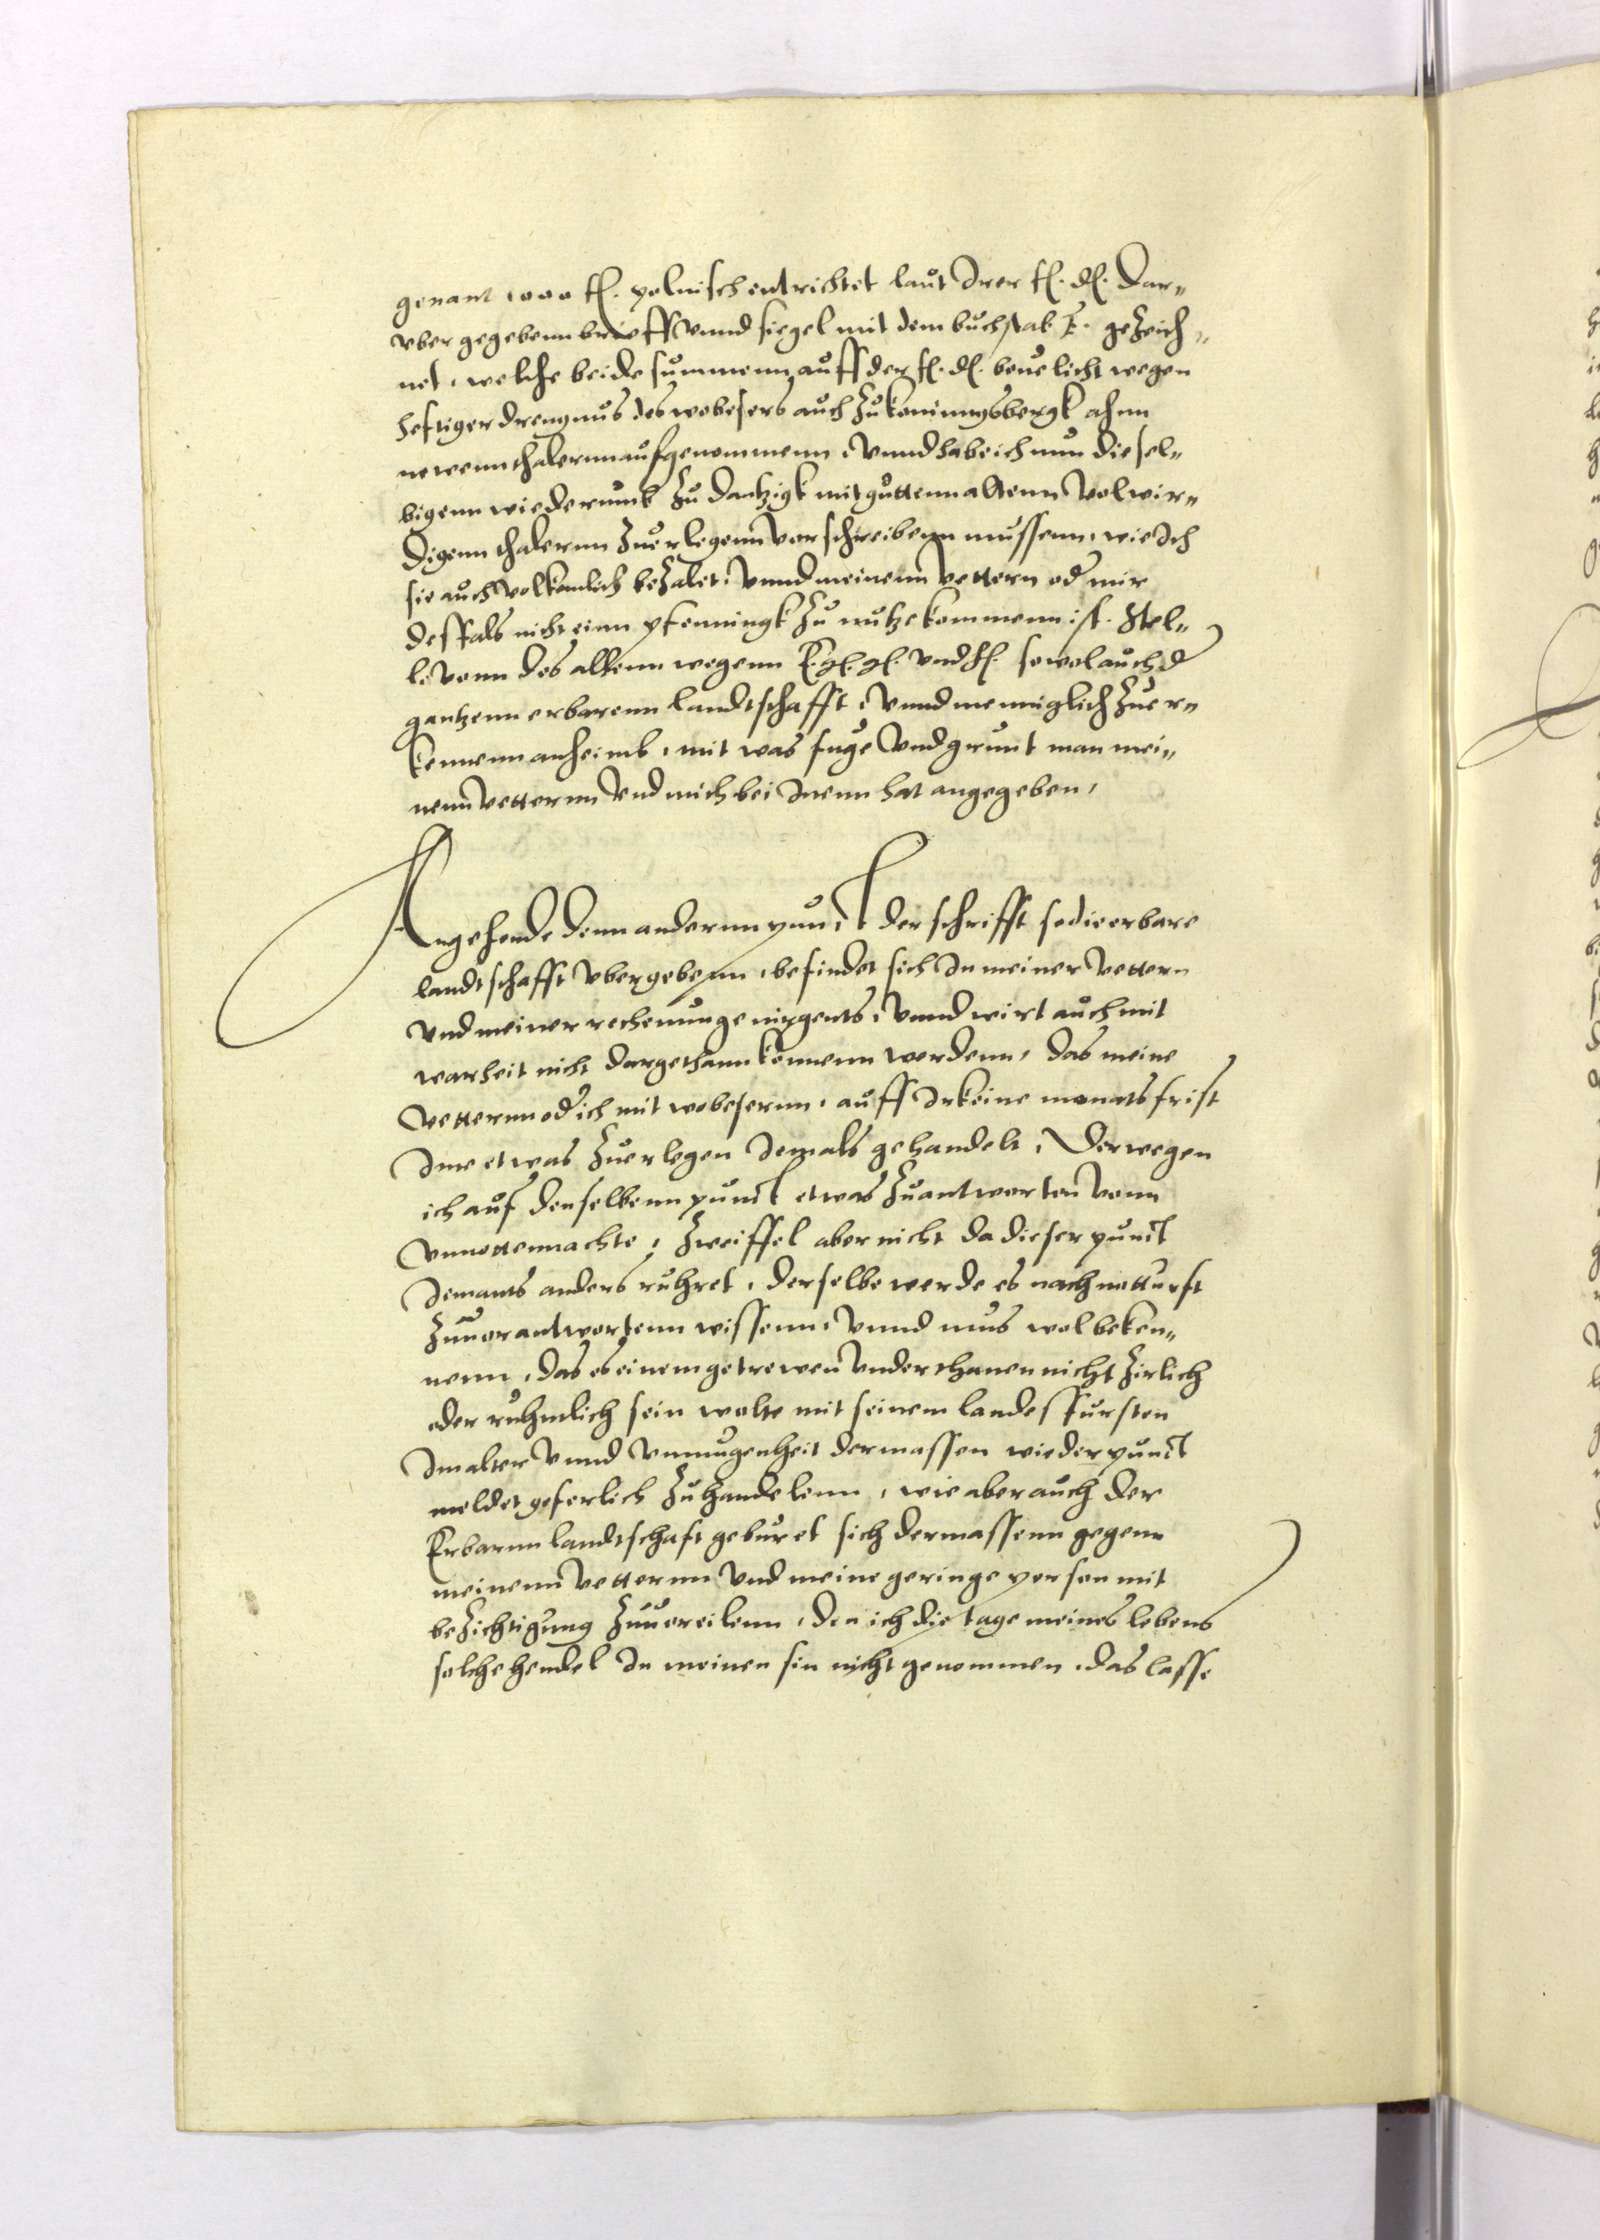 genant 1000 fl. polnisch entrichtet laut Irer fl. dl. dar„
vber gegebenn brieff vnnd siegel mit dem buchstab E. gezeich„
net, welche beide summenn auff der fl. dl. beuelicht wegen
heftiger drengnus des wobesers auch zu koninngsbergk ahnn
newenn thalernn aufgenommenn, vnnd habe ich nun diesel„
bigenn wiederumb zu dantzigk mit guttenn altenn volwir„
digenn thalernn zuerlegenn vorschreibenn mussenn, wie Ich
sie auch volkomlich bezalet, vnnd meinenn vettern od mir
desfals nicht einn pfenningk zu nutze kommenn ist. Stel„
le vonn des alles wegenn E. vnd fl. sowol auch d
gantzenn erbarenn landtschafft, vnnd menniglich zuer„
kennenn anheimb, mit was fuge vnd grunt man mei„
nenn vetternn vnd mich bei Inenn hat angegeben,
Angehende denn andernn punct der schrifft so die erbare
landtschafft vbergebenn, befindet sich In meiner vettern
vnd meiner rechenunge nirgents, vnnd wirt auch mit
warheit nicht dargethann konnenn werdenn, das meine
vetternn od ich mit wobesernn, auff Irkeine monats frist
Ime etwas zuerlegen Iemals gehandelt, Derwegen
ich auf denselbenn punct etwas zuantworten vonn
vnnottenn achte, zweiffel aber nicht da dieser punct
Iemants anders ruhret, derselbe werde es nach notturft
zuuorantwortenn wissenn, vnnd mus wol beken„
nenn, das es einem getrewen vnderthanen nicht zirlich
oder ruhmlich sein wolte mit seinem landesfursten
Im alter vnnd vnmugenheit dermassen wie der punct
meldet geferlich zuhandelenn, wie aber auch der
Erbarnn landtschaft geburet sich dermassenn gegenn
meinenn vetternn vnd meine geringe person mit
bezichtigung zuuoreilenn, den ich die tage meines lebens
solche hendel In meinen sin nicht genommen, das lasse